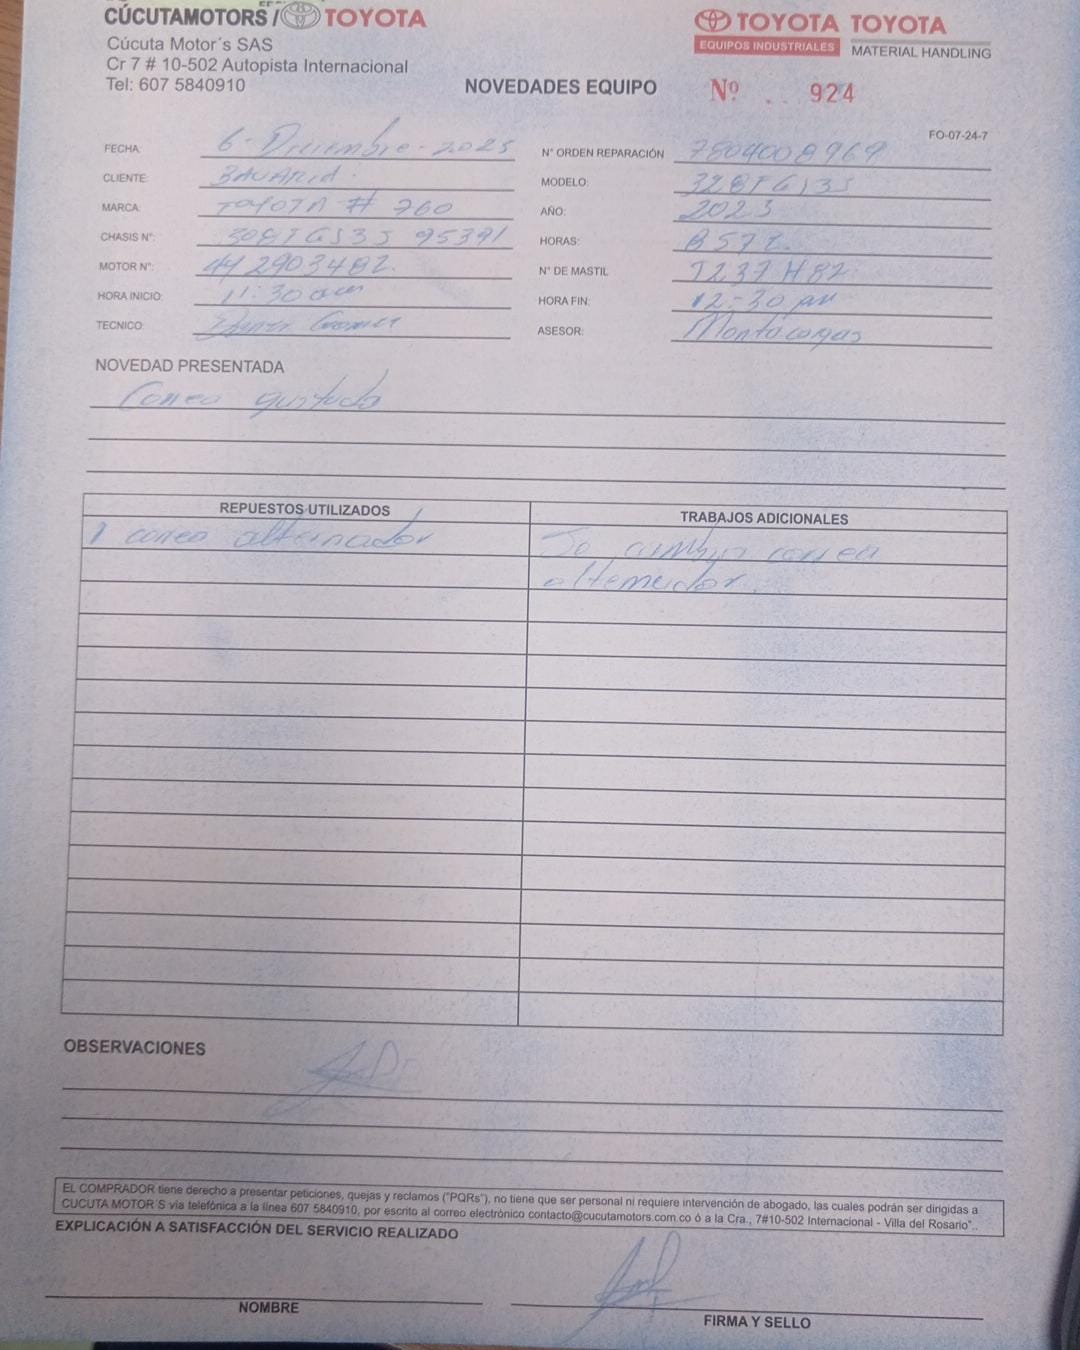 CÚCUTAMOTORS / TOYOTA
TOYOTA TOYOTA
EQUIPOS INDUSTRIALES MATERIAL HANDLING
Cúcuta Motor´s SAS
Cr 7 # 10-502 Autopista Internacional
Tel: 607 5840910
NOVEDADES EQUIPO
Nº 924
FO-07-24-7
FECHA: 6-Diciembre-2025
N° ORDEN REPARACIÓN 7804008969
CLIENTE: BAVARIA.
MODELO:
MARCA: TOYOTA # 760
AÑO: 2023
CHASIS N°: 95391
HORAS: 8572
MOTOR N°:
N° DE MASTIL
HORA INICIO: 11:30 am
HORA FIN: 12:30 pm
TECNICO:
ASESOR: Montacargas
NOVEDAD PRESENTADA
Correa gastada
REPUESTOS UTILIZADOS
TRABAJOS ADICIONALES
1 correa alternador
Se cambia correa
alternador.
OBSERVACIONES
EL COMPRADOR tiene derecho a presentar peticiones, quejas y reclamos ("PQRs"), no tiene que ser personal ni requiere intervención de abogado, las cuales podrán ser dirigidas a
CUCUTA MOTOR´S vía telefónica a la línea 607 5840910, por escrito al correo electrónico contacto@cucutamotors.com.co ó a la Cra., 7#10-502 Internacional - Villa del Rosario"..
EXPLICACIÓN A SATISFACCIÓN DEL SERVICIO REALIZADO
NOMBRE
FIRMA Y SELLO